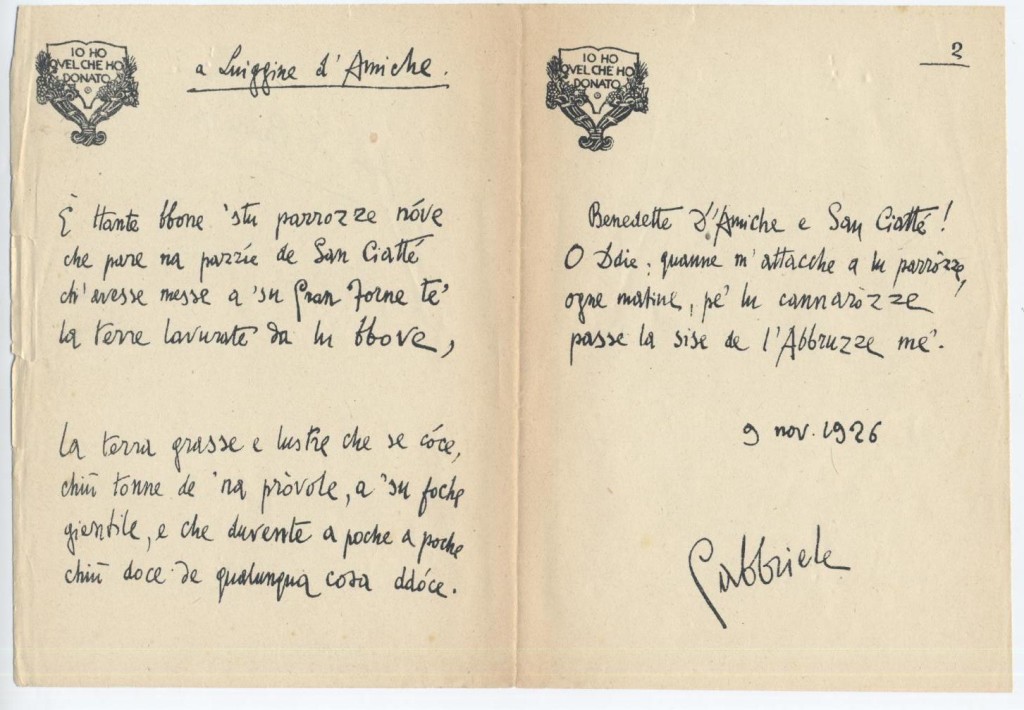 IO HO
QVEL CHE HO
DONATO
a Luiggine d'Amiche.
È ttante bbone 'stu parrozze nóve
che pare na pazzíe de San Ciatté
ch'avesse messe a 'su Gran Forne te'
la terre lavurate da lu bbove,
la terra grasse e lustre che se cóce,
chiù tonne de 'na pròvole, a 'su foche
gientile, e che duvente a poche a poche
chiù doce de qualunqua cosa ddóce.
IO HO
QVEL CHE HO
DONATO
2
Benedette D'Amiche e San Ciatté!
O Ddie, quanne m'attacche a lu parrózze,
ogne matine, pe' lu cannarózze
passe la sise de l'Abbruzze me'.
9 nov. 1926
Gabbriele